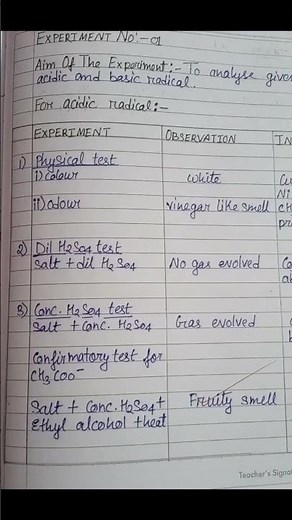 EXPERIMENT No:- 01
Aim Of The Experiment:- To analyse given
acidic and basic radical.
For acidic radical:-
EXPERIMENT OBSERVATION IN
1) Physical test
i) colour white
ii) odour vinegar like smell
2) Dil H2SO4 test
Salt + dil H2SO4 No gas evolved
3) Conc. H2SO4 test
Salt + Conc. H2SO4 Gas evolved
Confirmatory test for
CH3COO-
Salt + Conc. H2SO4 + Fruity smell
Ethyl alcohol + heat
Teacher's Signat